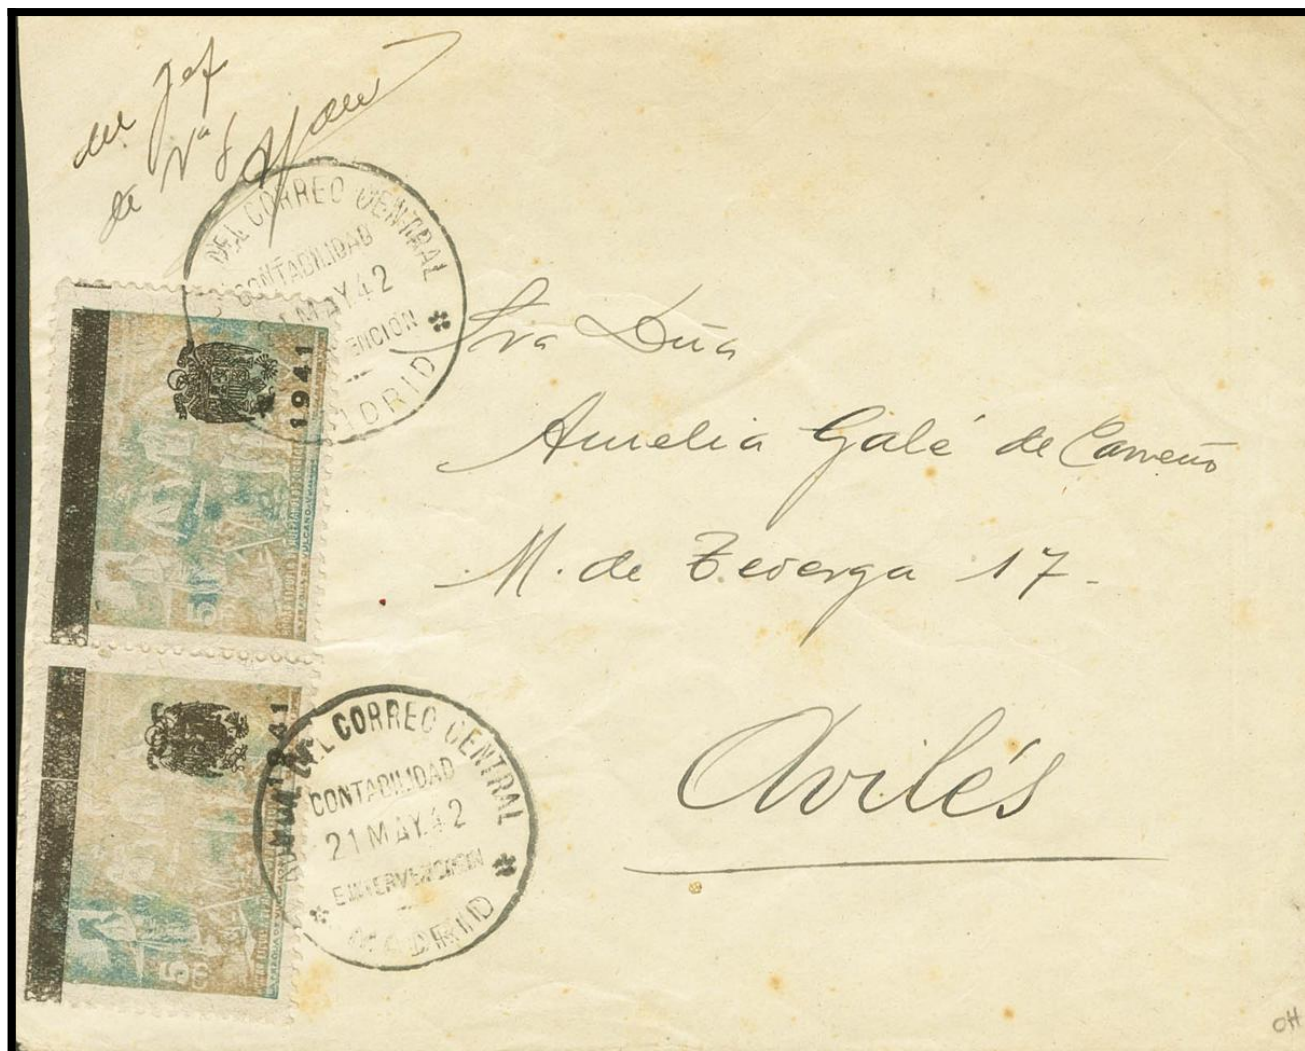 del Jef
de Nª S
DEL CORREO CENTRAL
CONTABILIDAD
MAY 42
MADRID
1941
Sra Dña
Aurelia Galé de Carreño
M. de Teverga 17-
Avilés
1941
LA FRAGUA DE VULCANO
DEL CORREO CENTRAL
CONTABILIDAD
21 MAY. 42
E INTERVENCION
MADRID
OH